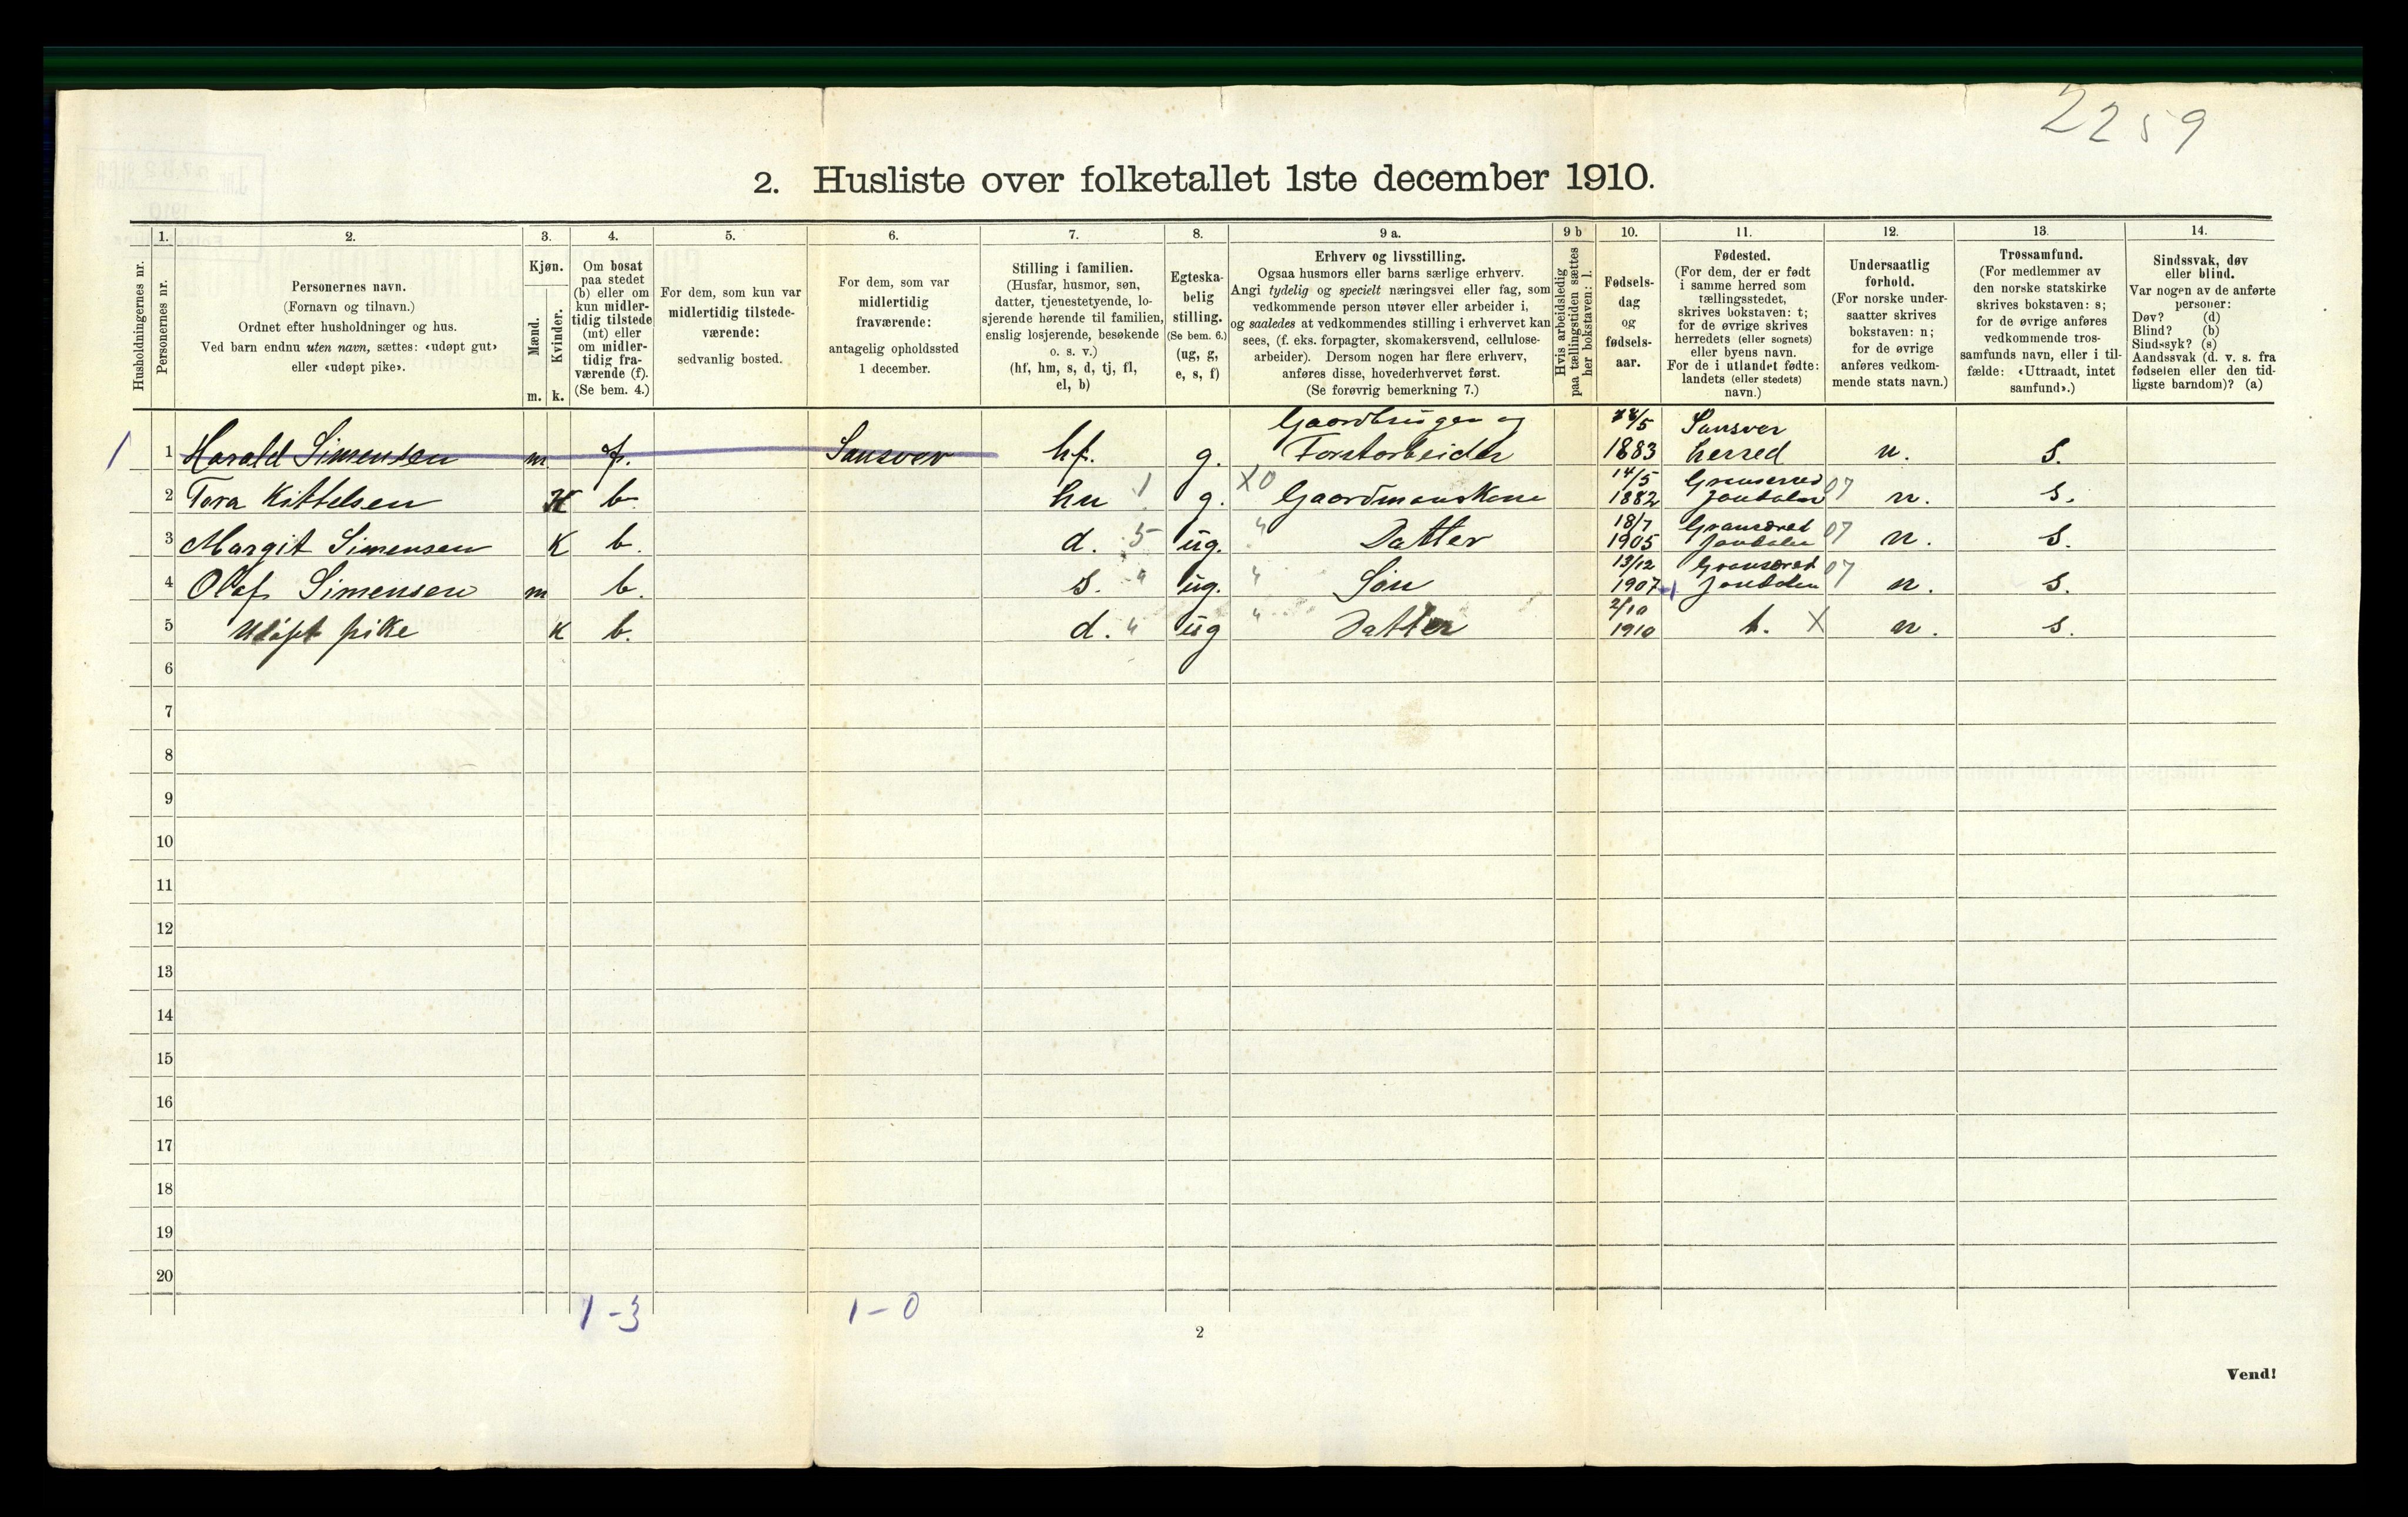 2259
2. Husliste over folketallet 1ste december 1910.
Husholdningernes nr.
1.
Personernes nr.
2.
Personernes navn.
(Fornavn og tilnavn.)
Ordnet efter husholdninger og hus.
Ved barn endnu uten navn, sættes: «udøpt gut»
eller «udøpt pike».
3.
Kjøn.
Mænd.
Kvinder.
m. k.
4.
Om bosat
paa stedet
(b) eller om
kun midler-
tidig tilstede
(mt) eller
om midler-
tidig fra-
værende (f).
(Se bem. 4.)
5.
For dem, som kun var
midlertidig tilstede-
værende:
sedvanlig bosted.
6.
For dem, som var
midlertidig
fraværende:
antagelig opholdssted
1 december.
7.
Stilling i familien.
(Husfar, husmor, søn,
datter, tjenestetyende, lo-
sjerende hørende til familien,
enslig losjerende, besøkende
o. s. v.)
(hf, hm, s, d, tj, fl,
el, b)
8.
Egteska-
belig
stilling.
(Se bem. 6.)
(ug, g,
e, s, f)
9 a.
Erhverv og livsstilling.
Ogsaa husmors eller barns særlige erhverv.
Angi tydelig og specielt næringsvei eller fag, som
vedkommende person utøver eller arbeider i,
og saaledes at vedkommendes stilling i erhvervet kan
sees, (f. eks. forpagter, skomakersvend, cellulose-
arbeider). Dersom nogen har flere erhverv,
anføres disse, hovederhvervet først.
(Se forøvrig bemerkning 7.)
9 b
Hvis arbeidsledig
paa tællingstiden sættes
her bokstaven: l.
10.
Fødsels-
dag
og
fødsels-
aar.
11.
Fødested.
(For dem, der er født
i samme herred som
tællingsstedet,
skrives bokstaven: t;
for de øvrige skrives
herredets (eller sognets)
eller byens navn.
For de i utlandet fødte:
landets (eller stedets)
navn.)
12.
Undersaatlig
forhold.
(For norske under-
saatter skrives
bokstaven: n;
for de øvrige
anføres vedkom-
mende stats navn.)
13.
Trossamfund.
(For medlemmer av
den norske statskirke
skrives bokstaven: s;
for de øvrige anføres
vedkommende tros-
samfunds navn, eller i til-
fælde: «Uttraadt, intet
samfund».)
14.
Sindssvak, døv
eller blind.
Var nogen av de anførte
personer:
Døv? (d)
Blind? (b)
Sindssyk? (s)
Aandssvak (d. v. s. fra
fødselen eller den tid-
ligste barndom)? (a)
1 1 Harald Simensen m f. Sansver hf. g. Gaardbruger og Forstarbeider /5 1883 Sansver herred n. s.
2 Tora Kittelsen K b. hu 1 g. X0 Gaardmanskone 14/5 1882 Gransherred Jondalen 07 n. s.
3 Margit Simensen K b. d. 5 ug. " Datter 18/7 1905 Gransered Jondalen 07 n. s.
4 Olaf Simensen m b. s. " ug. " Søn 13/12 1907 Gransered Jondalen 07 n. s.
5 Udøpt pike K b. d. " ug " Datter 2/10 1910 t. X n. s.
6
7
8
9
10
11
12
13
14
15
16
17
18
19
20
1-3 1-0
2
Vend!